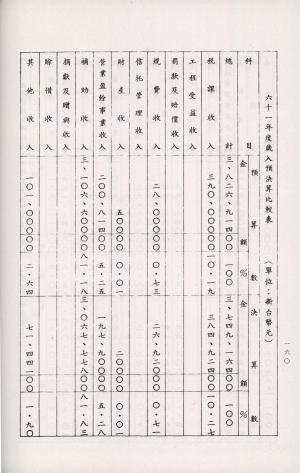 一六〇
六十一年度歲入預決算比較表 （單位：新台幣元）
科目 預算數 金額 % 決算數 金額 %
總計 三、八二六、九一四〇〇 一〇〇 三、七四九、一六四〇〇 一〇〇
稅課收入 三九〇、〇〇〇〇〇 一〇・一九 三八四、九二四〇〇 一〇・二七
工程受益收入
罰款及賠償收入
規費收入 二八、〇〇〇〇〇 〇・七三 二六、九〇〇〇〇 〇・七一
信託管理收入
財產收入 五〇〇〇〇 〇・〇一 二〇〇〇〇 〇・〇一
營業盈餘事業收入 二〇〇、八一四〇〇 五・二五 五・二八
補助收入 三、一〇六、六〇〇〇〇 八一・一八 三、〇六七、七七八〇〇 八一・八三
捐獻及贈與收入
賒借收入
其他收入 一〇一、〇〇〇〇〇 二・六四 七一、四四一〇〇 一・九〇